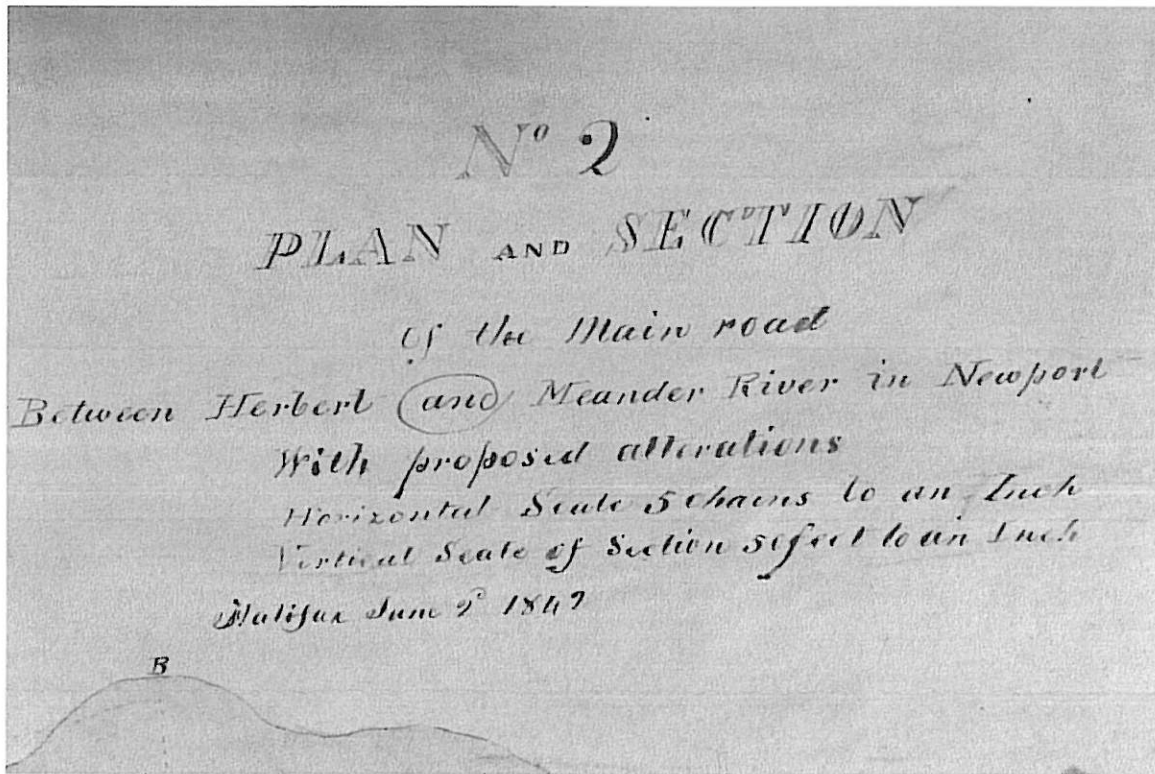 No 2
PLAN AND SECTION
of the Main road
Between Herbert and Meander River in Newport
With proposed alterations
Horizontal Scale 5 Chains to an Inch
Vertical Scale of Section 50 feet to an Inch
Halifax June 2d
B